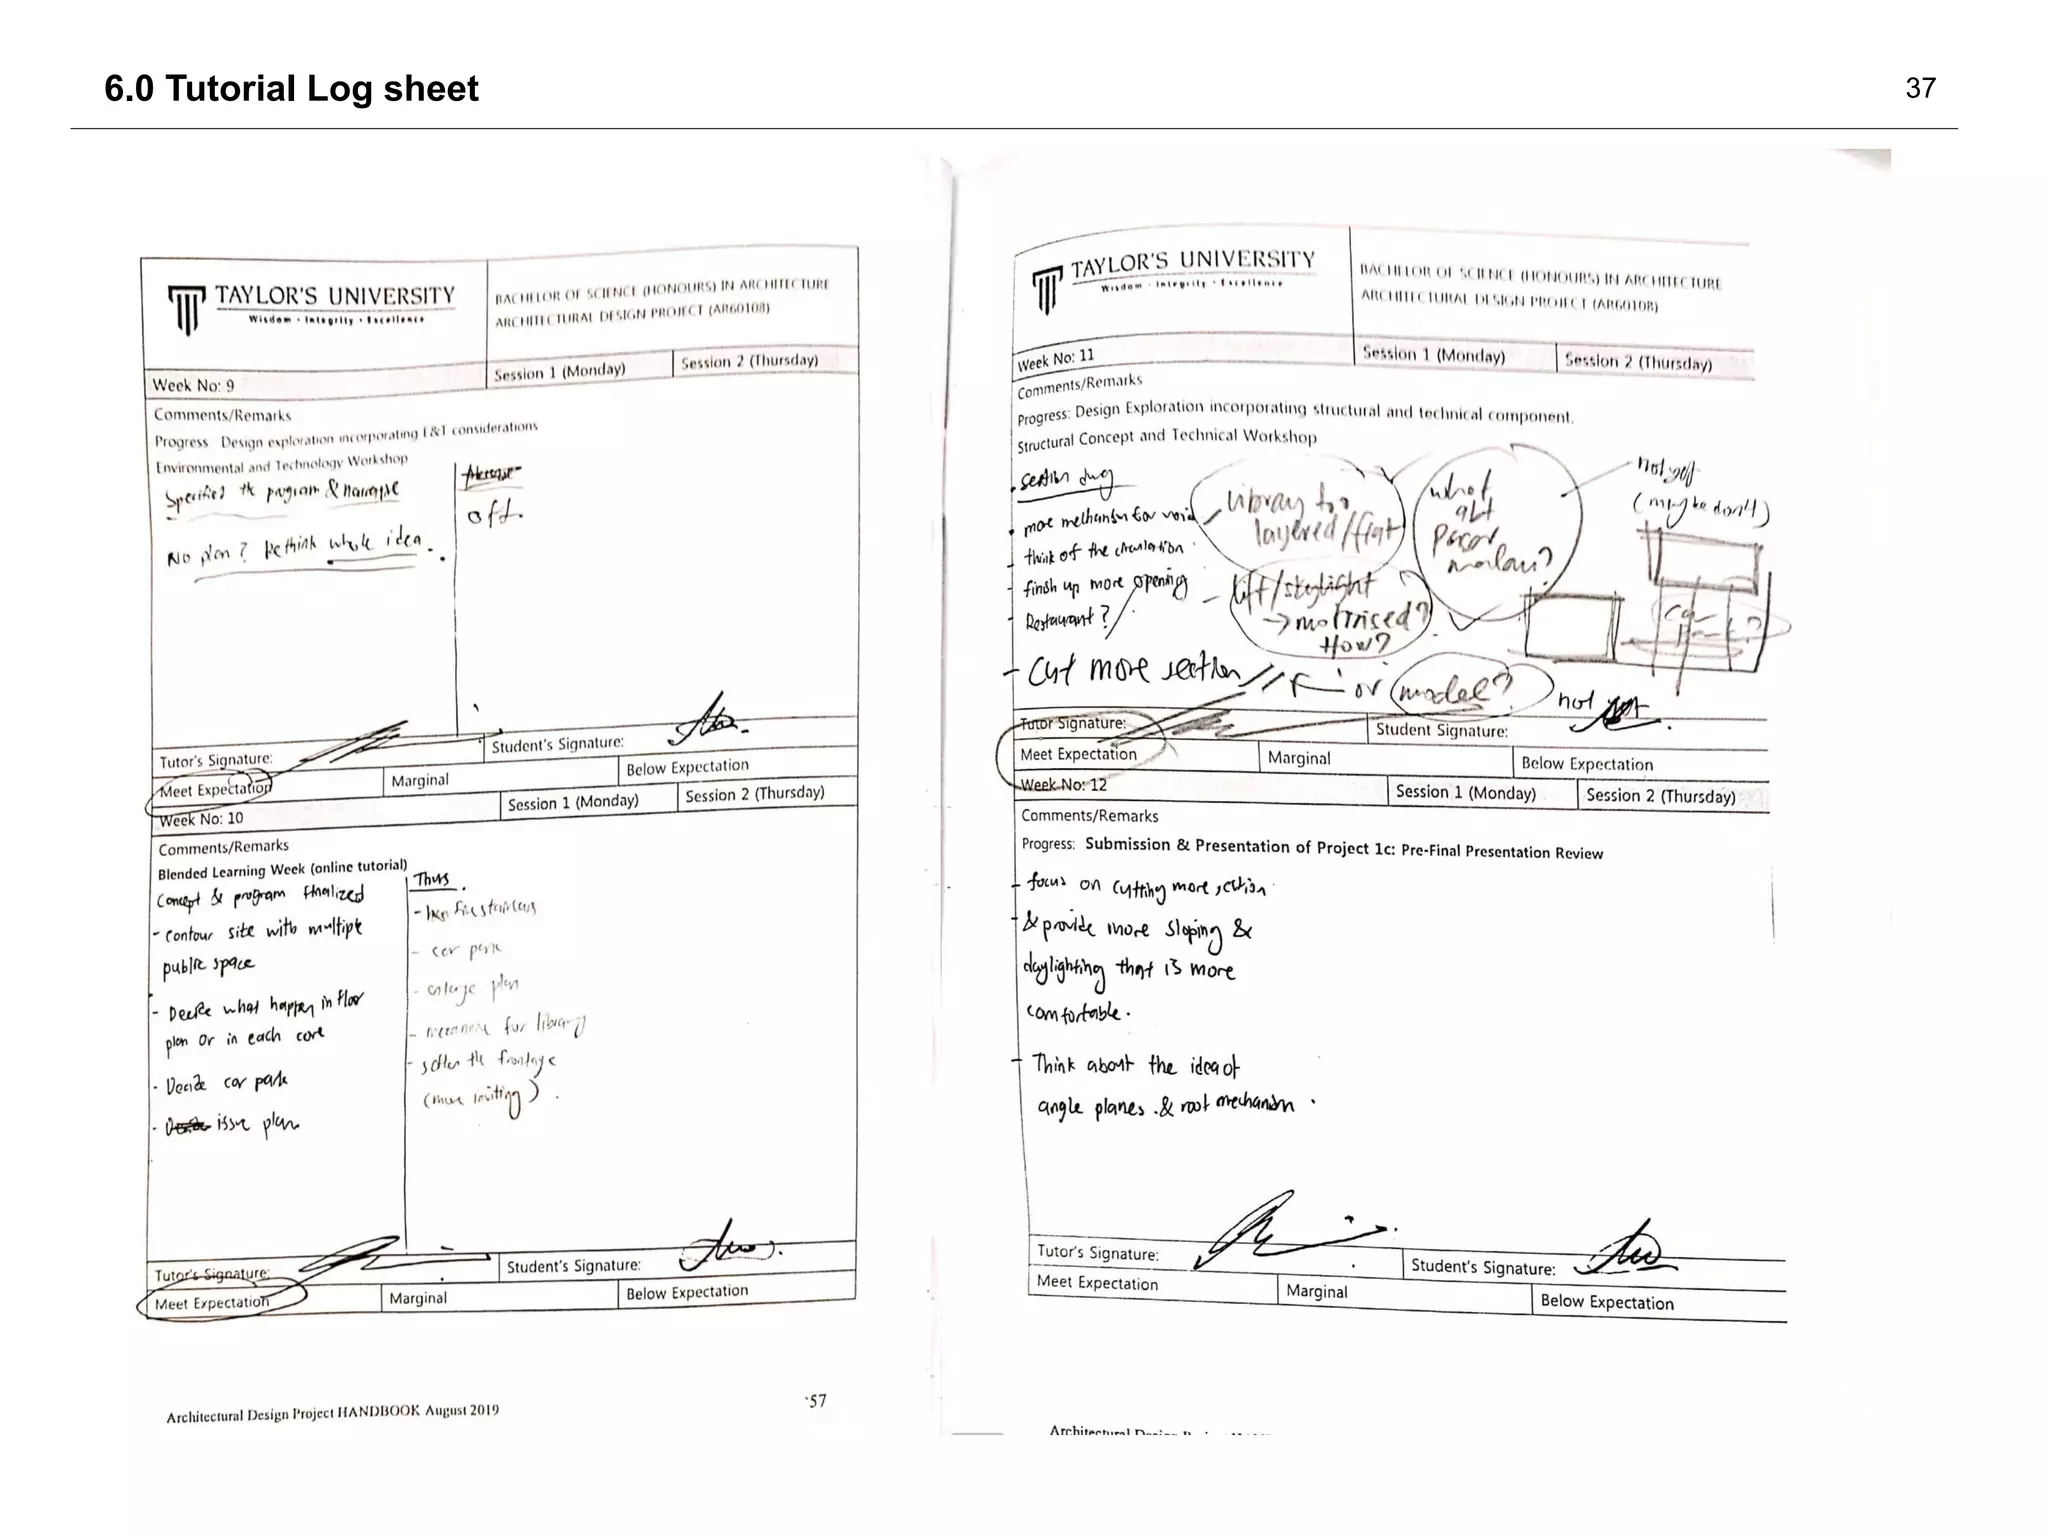 6.0 Tutorial Log sheet
37
TAYLOR'S UNIVERSITY
Wisdom · Integrity · Excellence
BACHELOR OF SCIENCE (HONOURS) IN ARCHITECTURE
ARCHITECTURAL DESIGN PROJECT (AR60108)
Week No: 9
Session 1 (Monday)
Session 2 (Thursday)
Comments/Remarks
Progress Design exploration incorporating E&T considerations
Environmental and Technology Workshop
Specified the program & narrative
No plan? Rethink whole idea.
Off.
Tutor's Signature:
Student's Signature:
Meet Expectation
Marginal
Below Expectation
Week No: 10
Session 1 (Monday)
Session 2 (Thursday)
Comments/Remarks
Blended Learning Week (online tutorial)
Concept & program finalized
- Contour site with multiple
public space
- Decide what happen in floor
plan or in each core
- Decide car park
- issue plan
Thurs
- car park
- enlarge plan
- mezzanine for library
- soften the frontage
(more inviting).
Tutor's Signature:
Student's Signature:
Meet Expectation
Marginal
Below Expectation
Architectural Design Project HANDBOOK August 2019
57
TAYLOR'S UNIVERSITY
Wisdom · Integrity · Excellence
BACHELOR OF SCIENCE (HONOURS) IN ARCHITECTURE
ARCHITECTURAL DESIGN PROJECT (AR60108)
Week No: 11
Session 1 (Monday)
Session 2 (Thursday)
Comments/Remarks
Progress: Design Exploration incorporating structural and technical component.
Structural Concept and Technical Workshop
section dwg
more mechanism for void
- think of the circulation
- finish up more opening
- Restaurant?
- Cut more section
Library too
layered/flat
lift/skylight
→ motorised?
How?
what
abt
Pasar
malam?
not yet
(maybe don't)
Car
Park?
or model?
not yet
Tutor Signature:
Student Signature:
Meet Expectation
Marginal
Below Expectation
Week No: 12
Session 1 (Monday)
Session 2 (Thursday)
Comments/Remarks
Progress: Submission & Presentation of Project 1c: Pre-Final Presentation Review
- focus on cutting more section
- & provide more sloping &
daylighting that is more
comfortable.
- Think about the idea of
angle planes & roof mechanism.
Tutor's Signature:
Student's Signature:
Meet Expectation
Marginal
Below Expectation